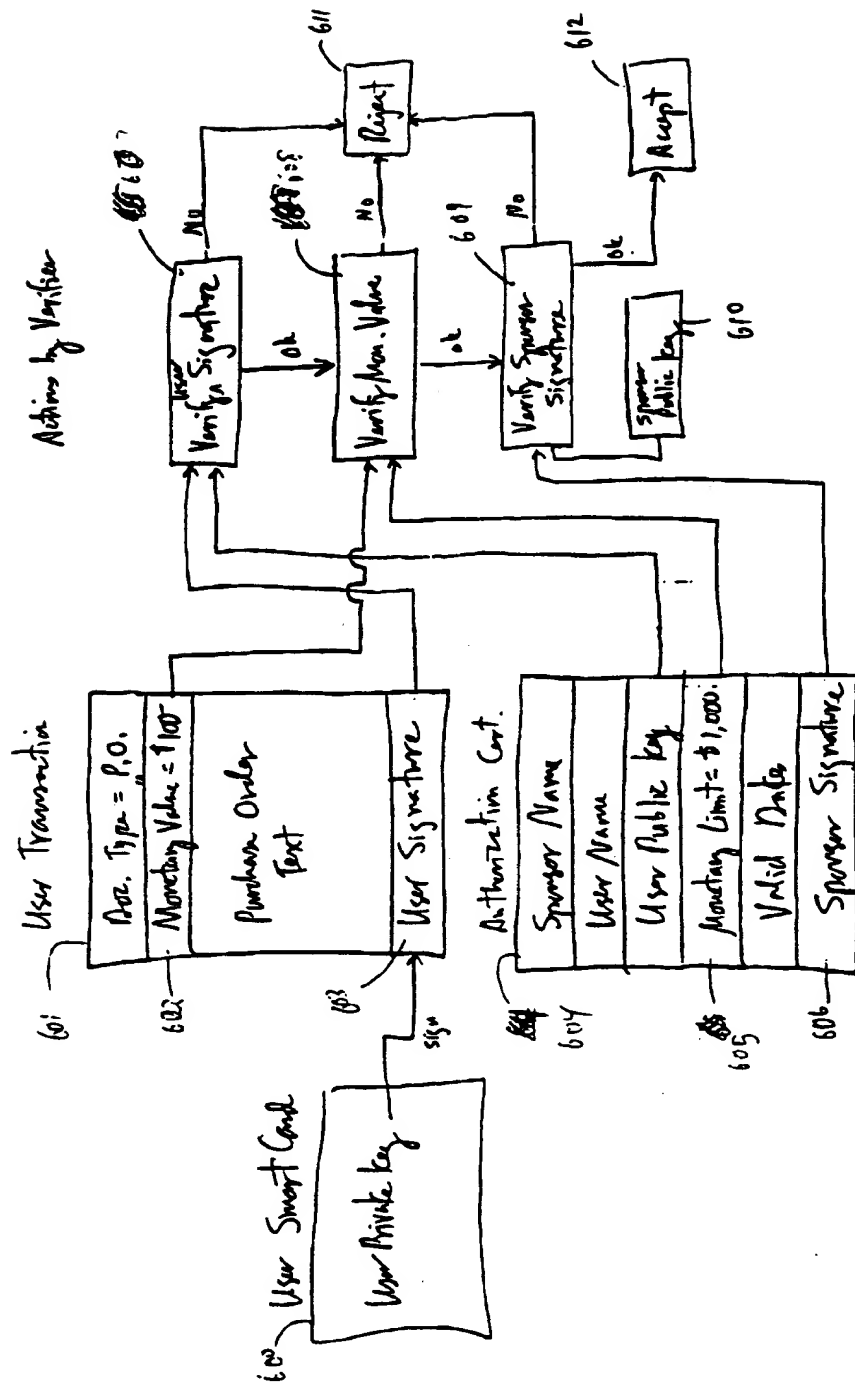 User Smart Card
600
User Private Key
sign
User Transaction
601
Doc. Type = P.O.
602
Monetary Value = $100
Purchase Order
Text
603
User Signature
Authorization Cert.
604
Sponsor Name
User Name
User Public Key
605
Monetary Limit = $1,000.
Valid Dates
606
Sponsor Signature
Actions by Verifier
User
Verify Signature
No
ok
Verify Mon. Value
No
ok
609
Verify Sponsor
Signature
No
ok
Sponsor
Public Key
610
611
Reject
612
Accept